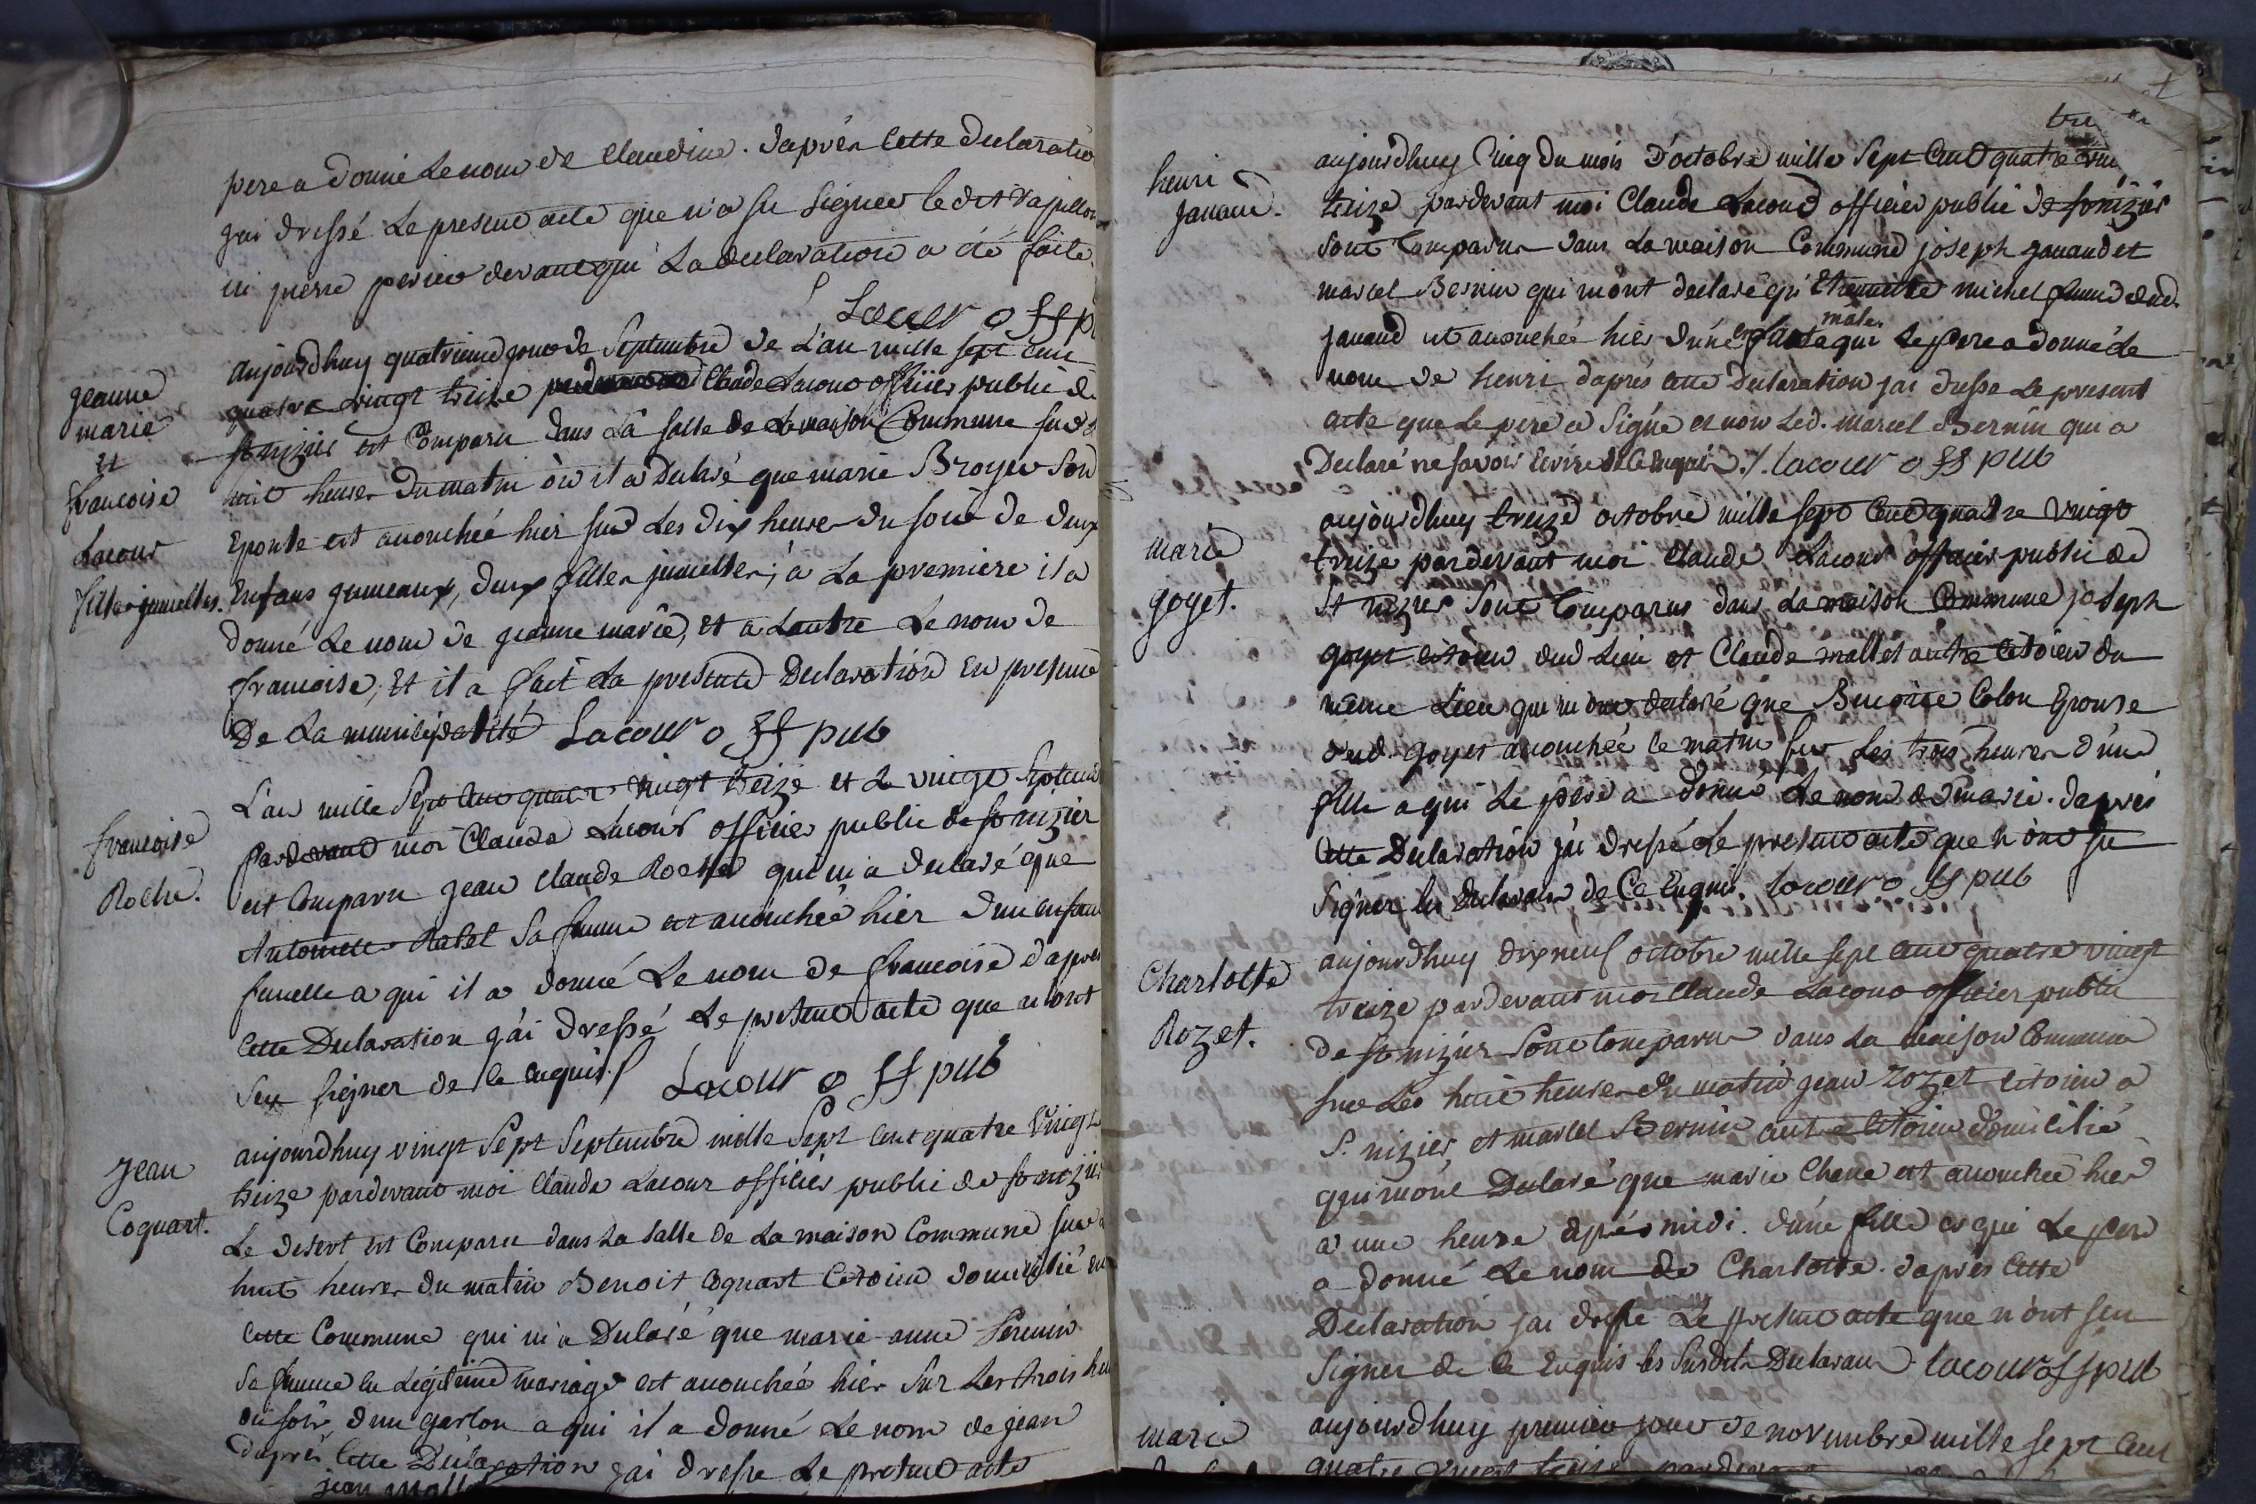 pere a donné le nom de Claudine. daprès cette declaratio
jai dressé le present acte que n'a su signer le dit
ni pierre perier devant qui la declaration a été faite.
Lacour off p
jeanne
marie
et
francoise
Lacour
filles jumelles.
aujourdhuy quatrieme jour de Septembre de L'an mille sept cent
quatre vingt treize Claude Lacour officier public de
st nizier est Comparu dans la salle de la maison Commune sur
huit heures du matin où il a Declaré que marie Broyer son
Epouse est accouchée hier sur les dix heures du soir de deux
Enfans jumeaux, deux filles jumelles; à La premiere il a
donné Le nom de jeanne marie, et a Lautre Le nom de
francoise, Et il a fait la presente Declaration en presence
De La municipalité Lacour off pub
francoise
Roche.
L'an mille Sept cent quatre vingt treize et le vingt Septemb
pardevant moi Claude Lacour officier public de st nizier
est Comparu jean Claude Roche qui m'a declaré que
Antoinette Ratel sa femme est accouchée hier d'un enfant
femelle a qui il a donné Le nom de francoise d'apres
cette Declaration j'ai dressé Le present acte que n'ont
seu signer de ce enquis Lacour off pub
jean
Coquart.
aujourdhuy vingt Sept Septembre mille Sept cent quatre Vingt
treize pardevant moi Claude Lacour officier public de st nizier
Le desert est Comparu dans la salle de la maison Commune sur
huit heures du matin Benoit Coquart Citoien domicilié en
cette Commune qui m'a Declaré que marie anne
sa femme en Légitime mariage est accouchée hier sur les trois heu
du soir d'un garson a qui il a donné Le nom de jean
d'après cette Declaration j'ai dresse Le present acte
jean
henri
janaud.
aujourdhuy Cinq du mois d'octobre mille Sept Cent quatre vin
treize pardevant moi Claude Lacour officier public de st nizier
sont Comparus dans La maison Commune joseph janaud et
marcel Bernin qui m'ont declaré qu'Etiennette michel femme dud.
janaud est accouchée hier d'un enfant male a qui Le pere a donné le
nom de henri d'aprés cette Declaration jai dresse Le present
acte que Le pere a Signé et non Led. marcel Bernin qui a
Declaré ne savoir écrire de ce enquis ./. Lacour off pub
marie
goyet.
aujourdhuy treize octobre mille sept cent quatre vingt
treize pardevant moi Claude Lacour officier public de
st nizier sont Comparus dans La maison Commune joseph
goyet citoien dud Lieu et Claude mallet autre citoien du
même Lieu qui m'ont declaré que Benoite Colon Epouse
dud. goyet accouchée ce matin sur Les trois heures d'une
fille a qui Le père a donné Le nom de marie. daprés
Cette Declaration j'ai dressé Le present acte que n'ont su
signer les declarans de Ce Enquis. Lacour off pub
Charlotte
Rozet.
aujourdhuy dixneuf octobre mille sept cent quatre vingt
treize pardevant moi Claude Lacour officier public
de st nizier sont Comparus dans La maison Commune
sur Les huit heures du matin jean Rozet citoien a
S. nizier et marcel Bernin autre citoien domicilié
qui m'ont Declaré que marie Chene est accouchée hier
a une heure aprés midi. d'une fille a qui Le pere
a donné Le nom de Charlotte. daprès Cette
Declaration jai dresse Le present acte que n'ont seu
signer de ce Enquis les susdits Declarans. Lacour off pub
marie
aujourdhuy premier jour de novembre mille sept Cent
quatre vingt treize